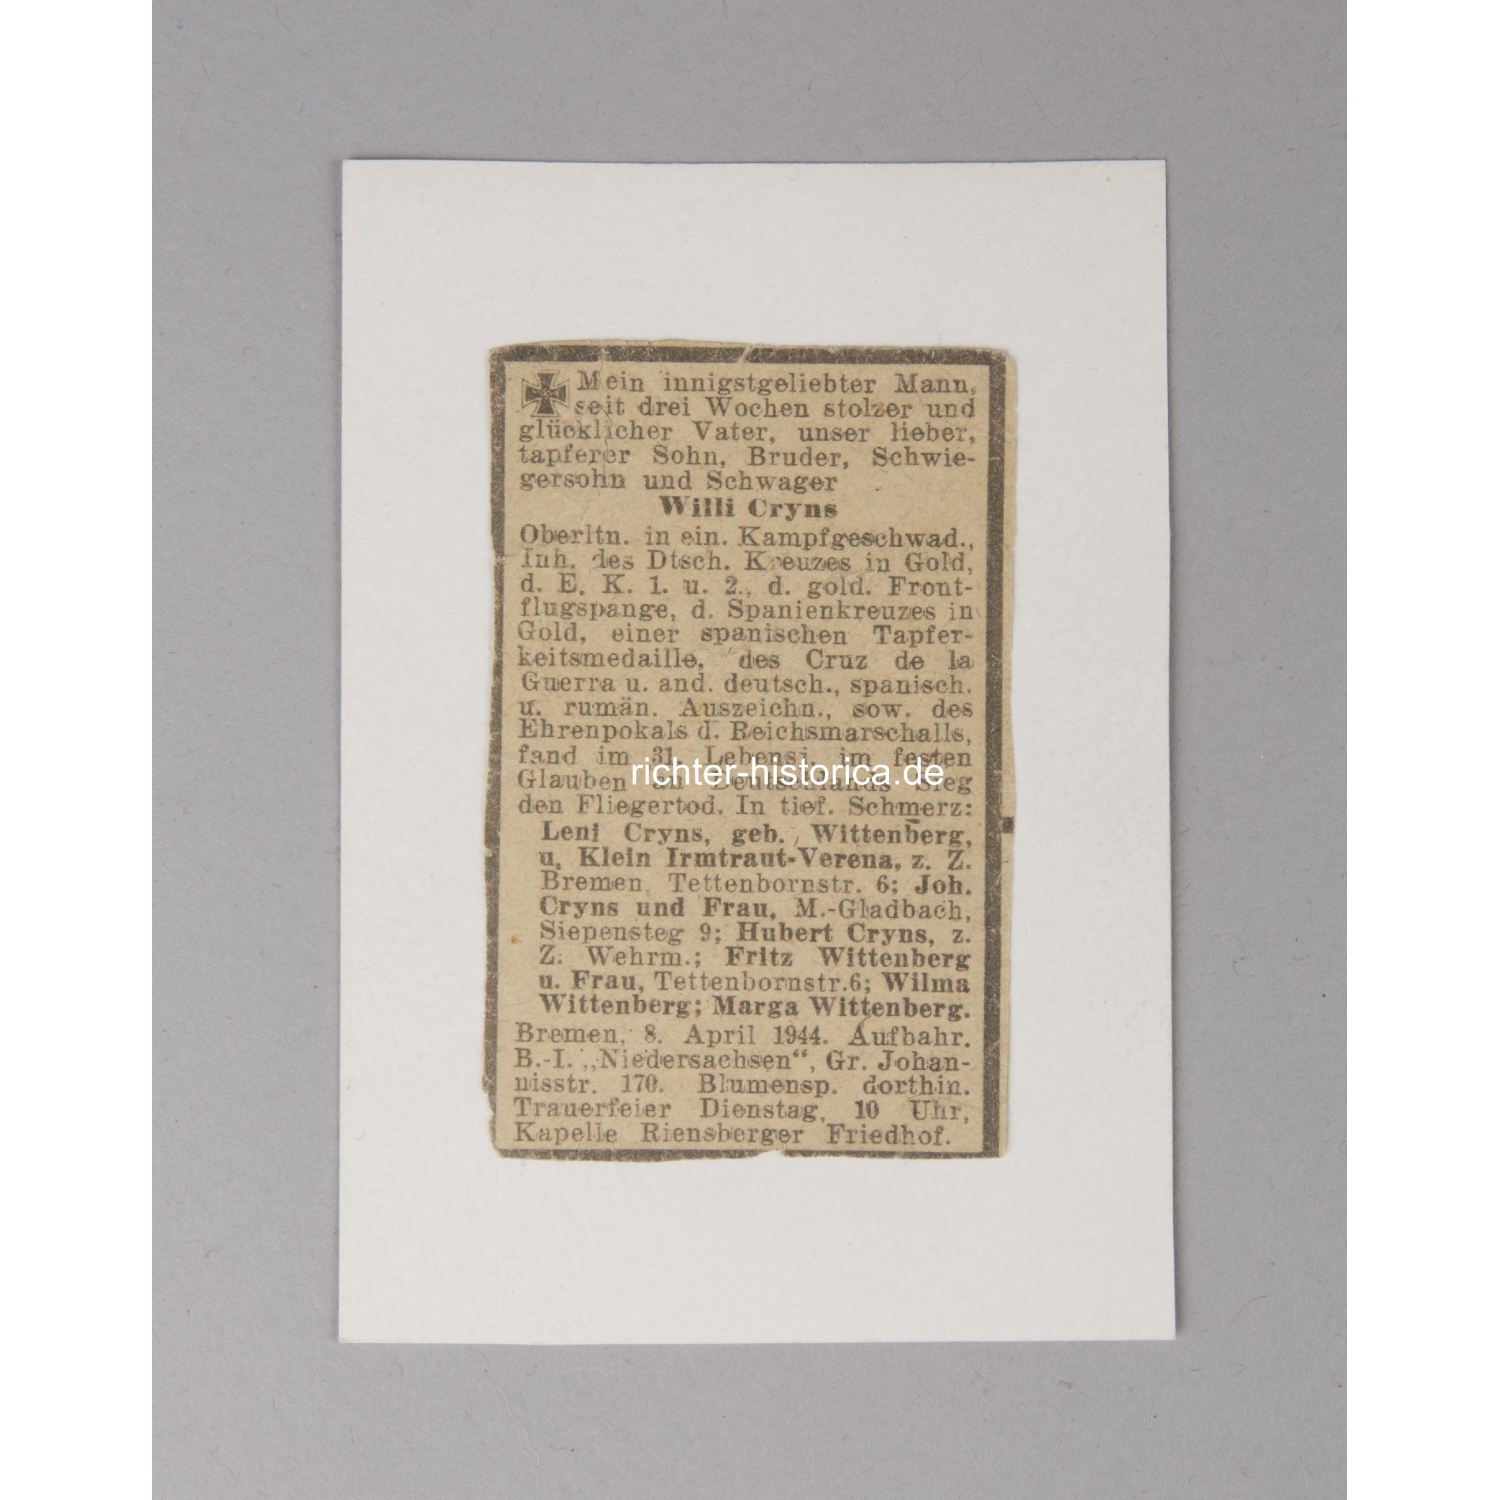 Mein innigstgeliebter Mann,
seit drei Wochen stolzer und
glücklicher Vater, unser lieber,
tapferer Sohn, Bruder, Schwie-
gersohn und Schwager
Willi Cryns
Oberltn. in ein. Kampfgeschwad.,
Inh. des Dtsch. Kreuzes in Gold,
d. E. K. 1. u. 2., d. gold. Front-
flugspange, d. Spanienkreuzes in
Gold, einer spanischen Tapfer-
keitsmedaille, des Cruz de la
Guerra u. and. deutsch., spanisch.
u. rumän. Auszeichn., sow. des
Ehrenpokals d. Reichsmarschalls,
fand im 31. Lebensj. im festen
richter-historica.de
Glauben an Deutschlands Sieg
den Fliegertod. In tief. Schmerz:
Leni Cryns, geb. Wittenberg,
u. Klein Irmtraut-Verena, z. Z.
Bremen, Tettenbornstr. 6; Joh.
Cryns und Frau, M.-Gladbach,
Siepensteg 9; Hubert Cryns, z.
Z. Wehrm.; Fritz Wittenberg
u. Frau, Tettenbornstr.6; Wilma
Wittenberg; Marga Wittenberg.
Bremen, 8. April 1944. Aufbahr.
B.-I. „Niedersachsen“, Gr. Johan-
nisstr. 170. Blumensp. dorthin.
Trauerfeier Dienstag, 10 Uhr,
Kapelle Riensberger Friedhof.